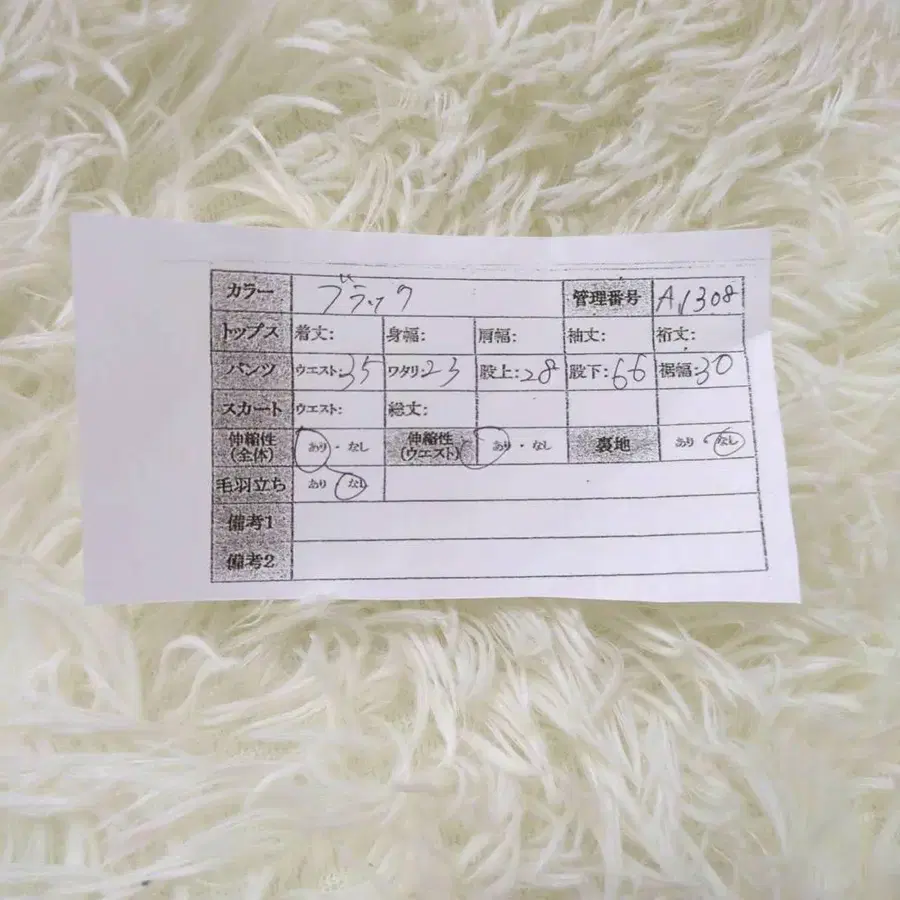 カラー ブラック 管理番号 A1308
トップス 着丈: 身幅: 肩幅: 袖丈: 裄丈:
パンツ ウエスト:35 ワタリ:23 股上:28 股下:66 裾幅:30
スカート ウエスト: 総丈:
伸縮性(全体) あり・なし 伸縮性(ウエスト) あり・なし 裏地 あり なし
毛羽立ち あり なし
備考1
備考2